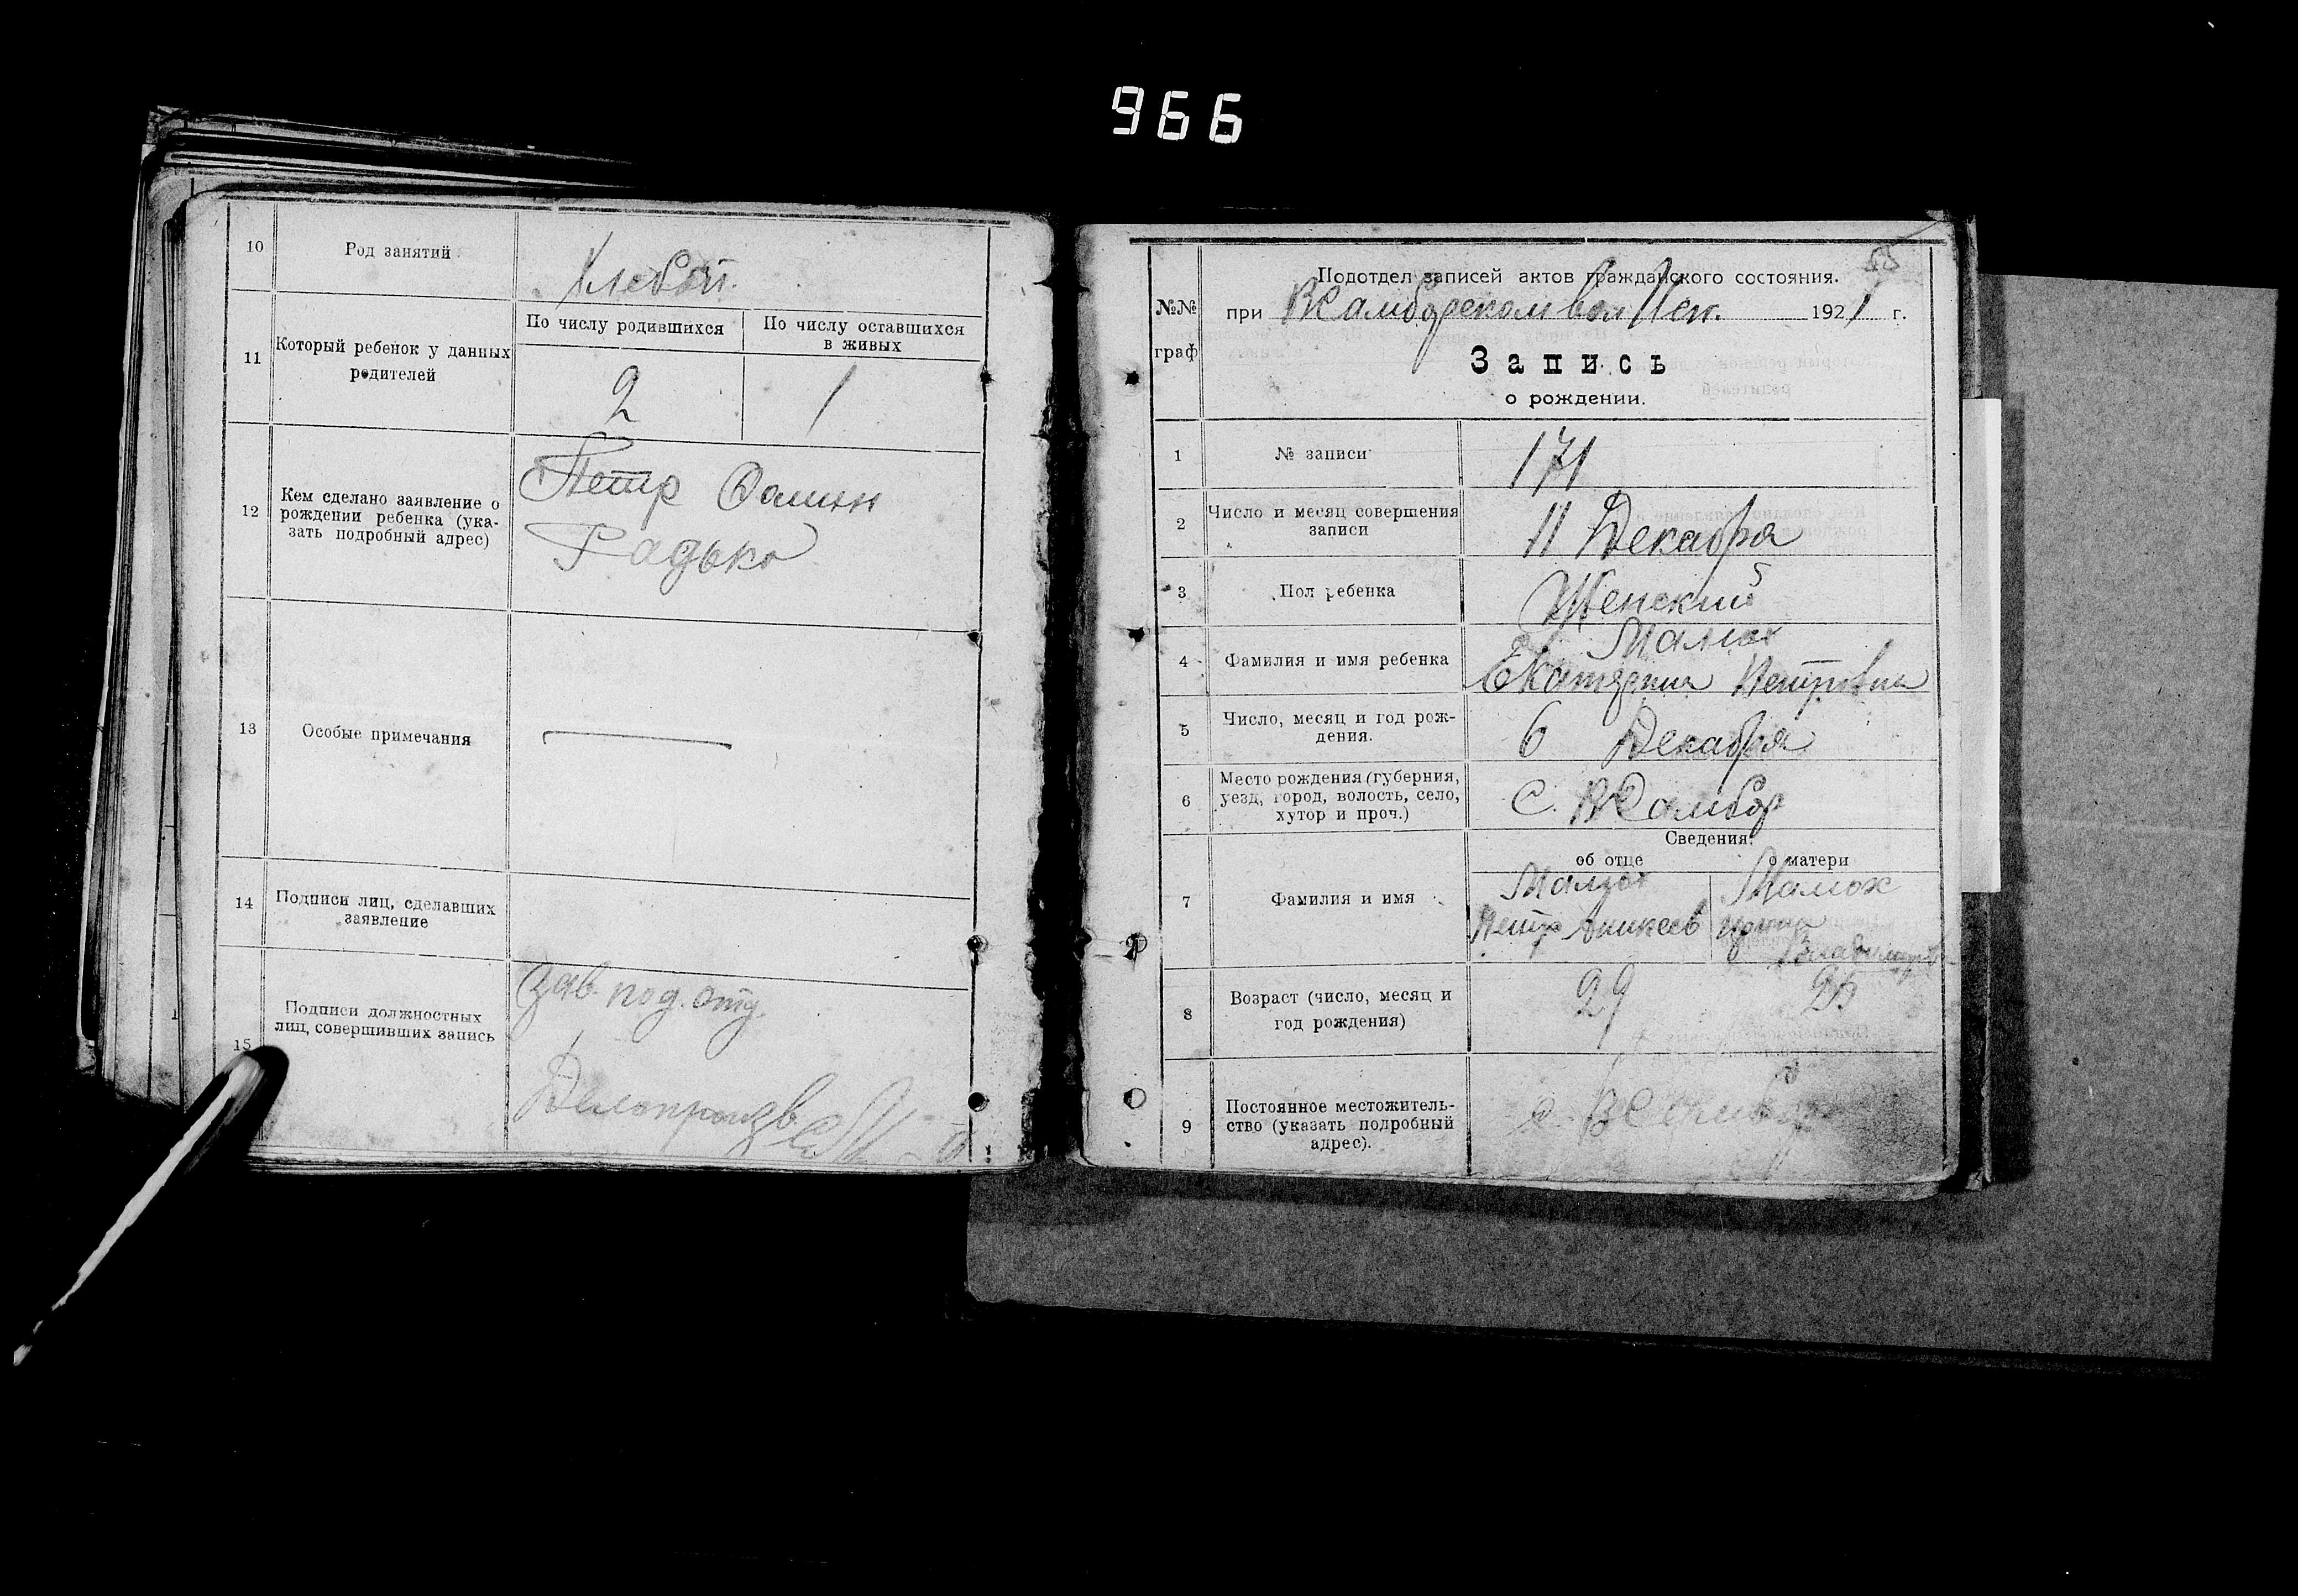 966
10
Род занятий
Хлебоп.
11
Который ребенок у данных
родителей
По числу родившихся
По числу оставшихся
в живых
2
1
12
Кем сделано заявление о
рождении ребенка (ука-
зать подробный адрес)
Петр
Радько
13
Особые примечания
14
Подписи лиц, сделавших
заявление
15
Подписи должностных
лиц, совершивших запись
Зав. под. отд.
Делопроизв
55
№№
граф
Подотдел записей актов гражданского состояния.
при ВСамборском вол Исп. 1921 г.
Запись
о рождении.
1
№ записи
171
2
Число и месяц совершения
записи
11 Декабря
3
Пол ребенка
Женский
4
Фамилия и имя ребенка
Малюх
Екатерина Петровна
5
Число, месяц и год рож-
дения.
6 Декабря
6
Место рождения (губерния,
уезд, город, волость, село,
хутор и проч.)
С. ВСамбор
Сведения:
об отце
о матери
7
Фамилия и имя
Малюх
Петр Аникеев
Малюх
Ирина
Владимиров
8
Возраст (число, месяц и
год рождения)
29
25
9
Постоянное местожитель-
ство (указать подробный
адрес).
с. ВСамбор